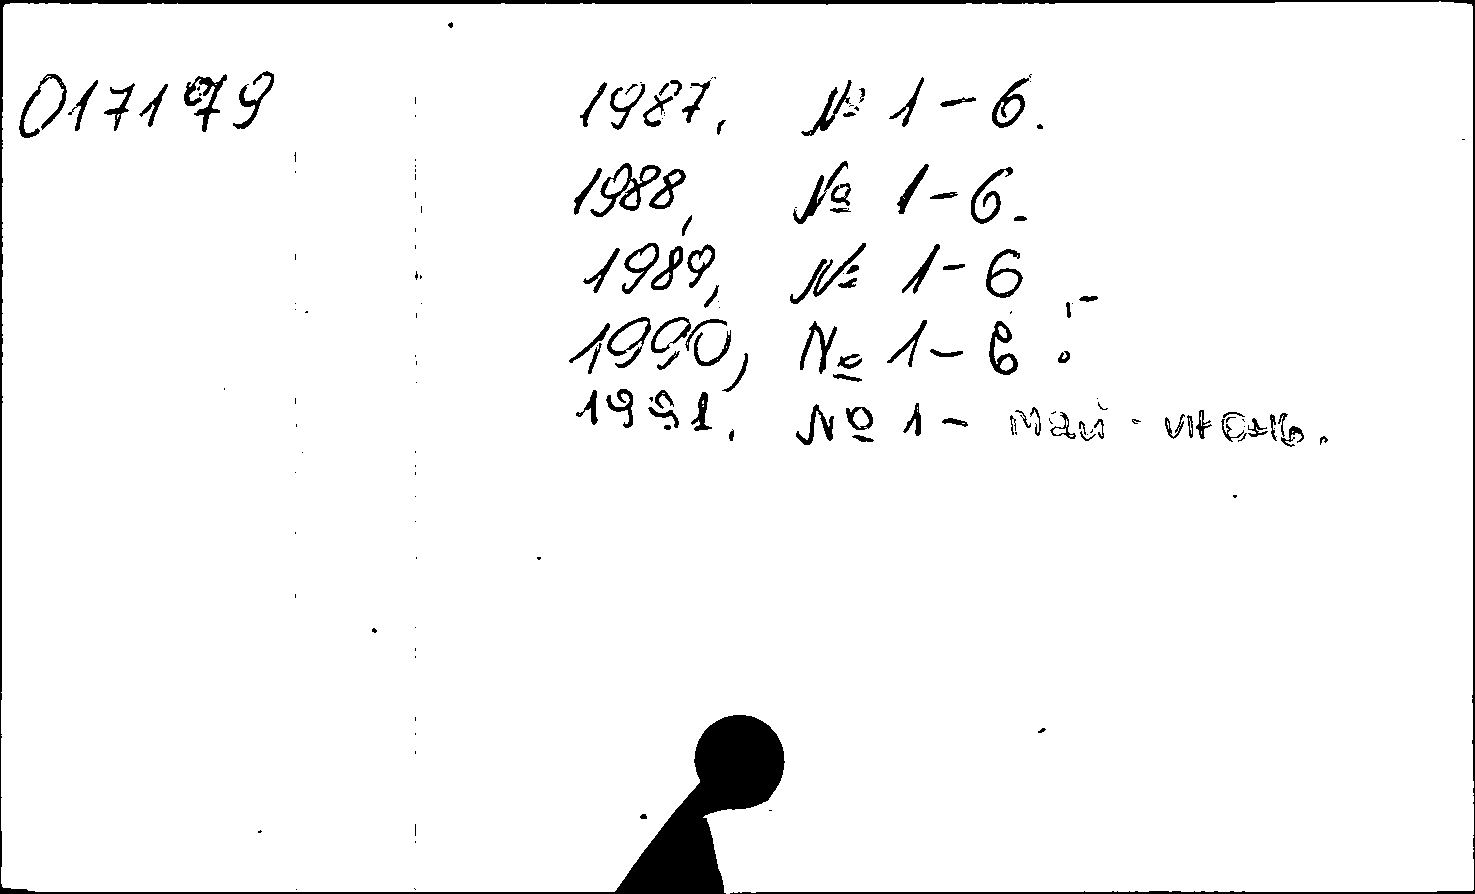 017179
1987, № 1-6.
1988, № 1-6.
1989, № 1-6
1990, № 1-6
1991. № 1- май - июнь.